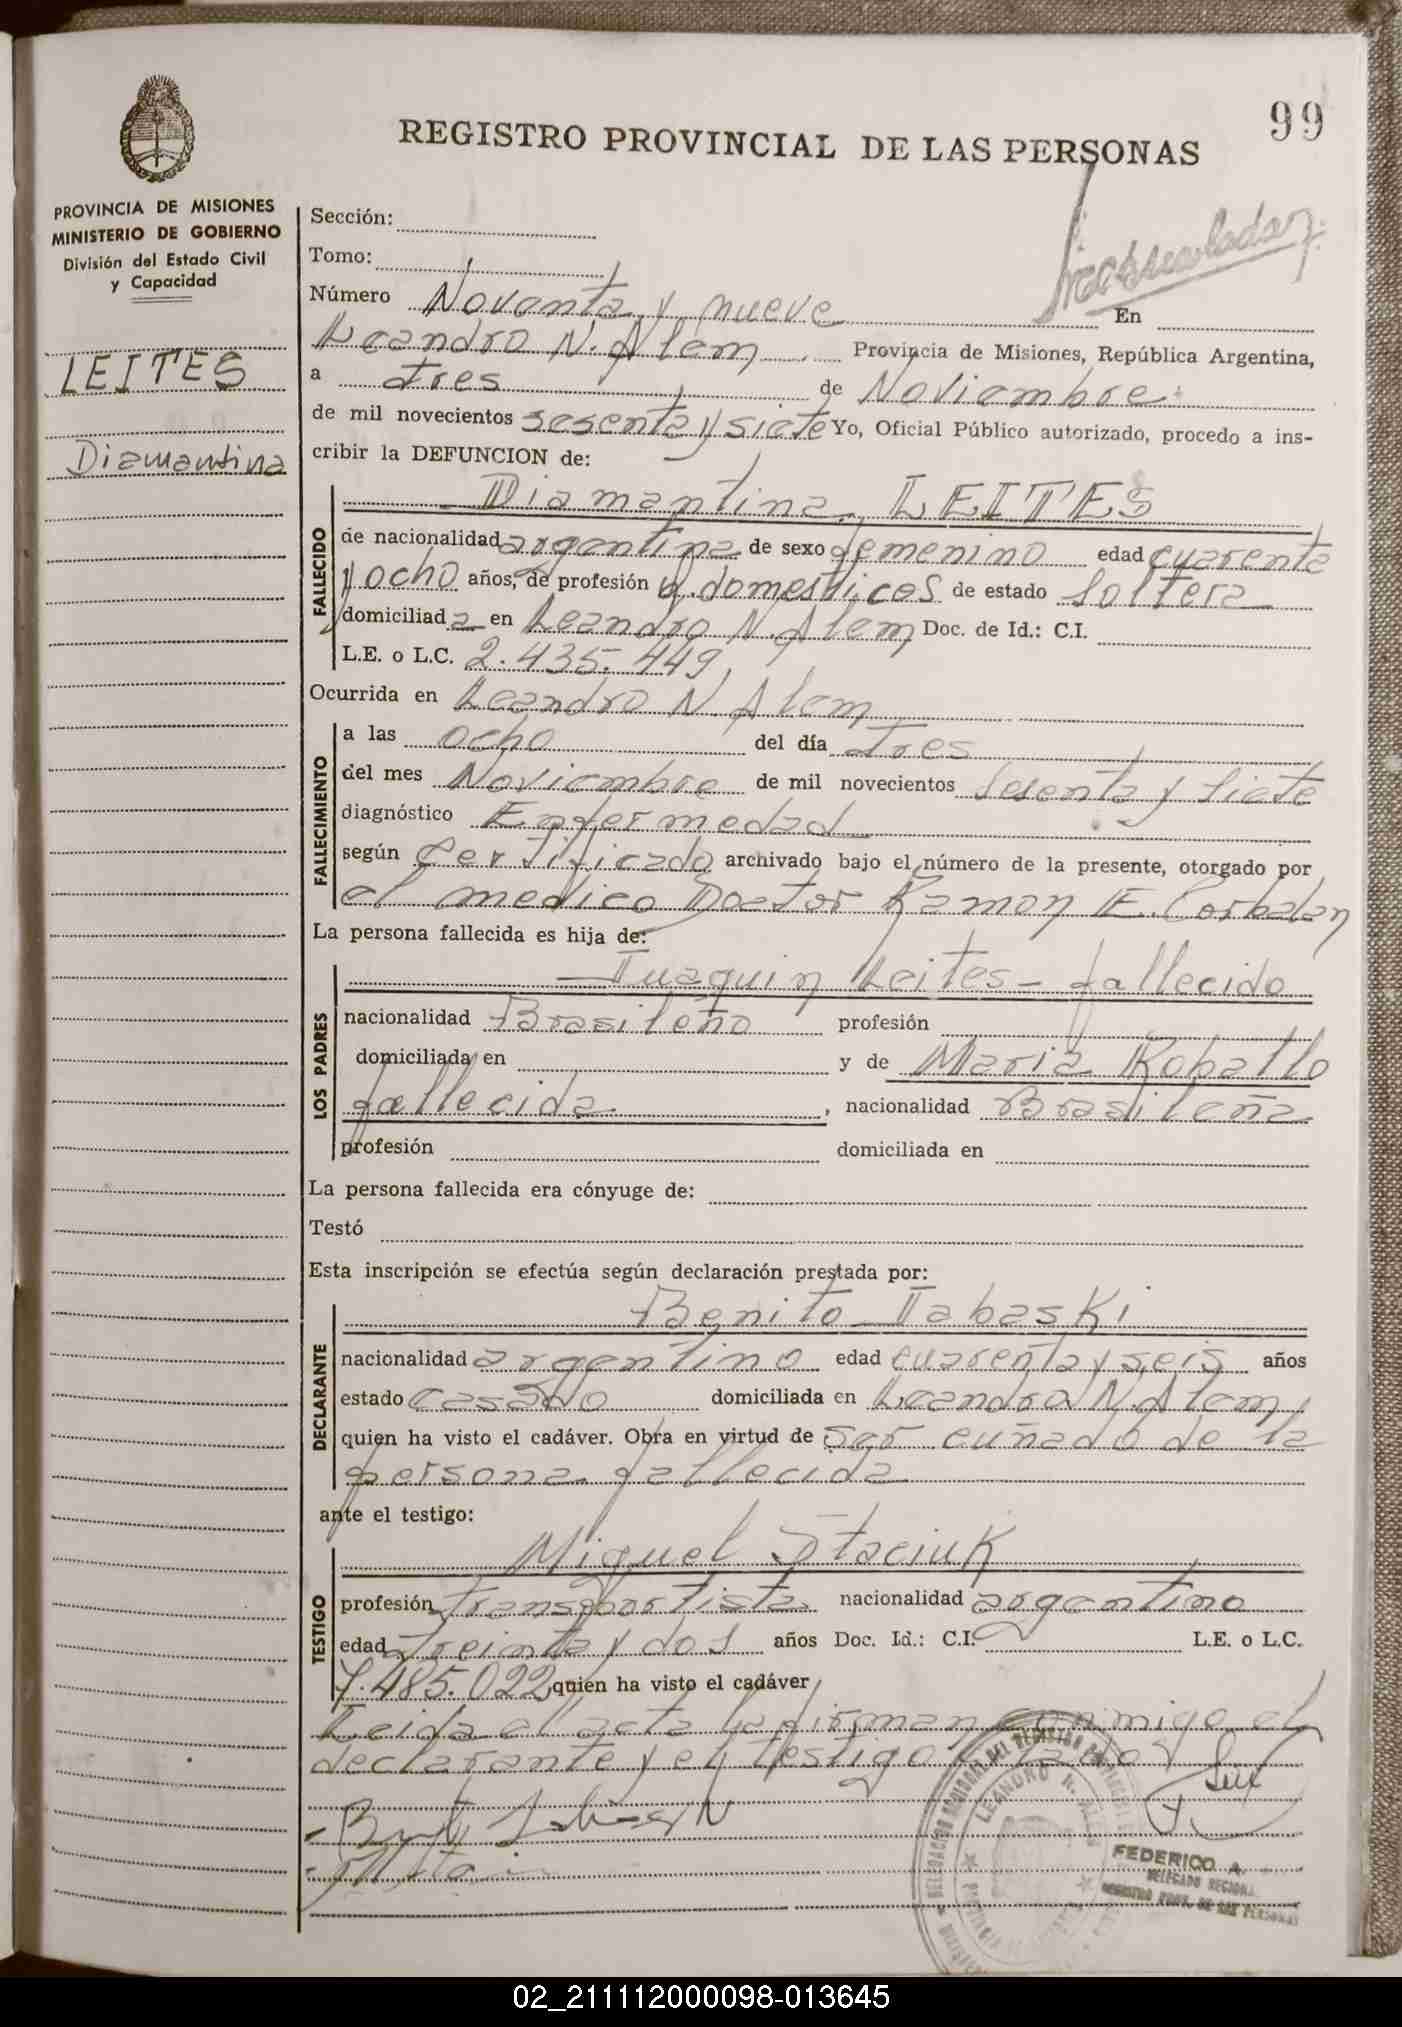 99
REGISTRO PROVINCIAL DE LAS PERSONAS
PROVINCIA DE MISIONES
MINISTERIO DE GOBIERNO
División del Estado Civil
y Capacidad
LEITES
Diamantina
Sección:
Tomo:
Número Noventa y nueve En
Leandro N. Alem Provincia de Misiones, República Argentina,
a tres de Noviembre
de mil novecientos sesenta y siete Yo, Oficial Público autorizado, procedo a ins-
cribir la DEFUNCION de:
Diamantina LEITES
FALLECIDO
de nacionalidad argentina de sexo femenino edad cuarenta
y ocho años, de profesión q. domesticos de estado soltera
domiciliada en Leandro N. Alem Doc. de Id.: C.I.
L.E. o L.C. 2.435.449
Ocurrida en Leandro N. Alem
FALLECIMIENTO
a las ocho del día tres
del mes Noviembre de mil novecientos sesenta y siete
diagnóstico Enfermedad
según Certificado archivado bajo el número de la presente, otorgado por
el medico Doctor Ramon E. Corbalan
La persona fallecida es hija de:
LOS PADRES
Juaquin Leites - fallecido
nacionalidad Brasileño profesión
domiciliada en y de Maria Robatlo
fallecida, nacionalidad Brasileña
profesión domiciliada en
La persona fallecida era cónyuge de:
Testó
Esta inscripción se efectúa según declaración prestada por:
DECLARANTE
Benito Tabaski
nacionalidad argentino edad cuarenta y seis años
estado casado domiciliada en Leandro N. Alem
quien ha visto el cadáver. Obra en virtud de ser cuñado de la
persona fallecida
ante el testigo:
TESTIGO
Miguel Staciuk
profesión transportista nacionalidad argentino
edad treinta y dos años Doc. Id.: C.I. L.E. o L.C.
7.485.022 quien ha visto el cadáver
Leida el acta la firman conmigo el
declarante y el testigo
LEANDRO N. ALEM
FEDERICO A.
DELEGADO REGIONAL
REGISTRO PROV. DE LAS PERSONAS
02_211112000098-013645